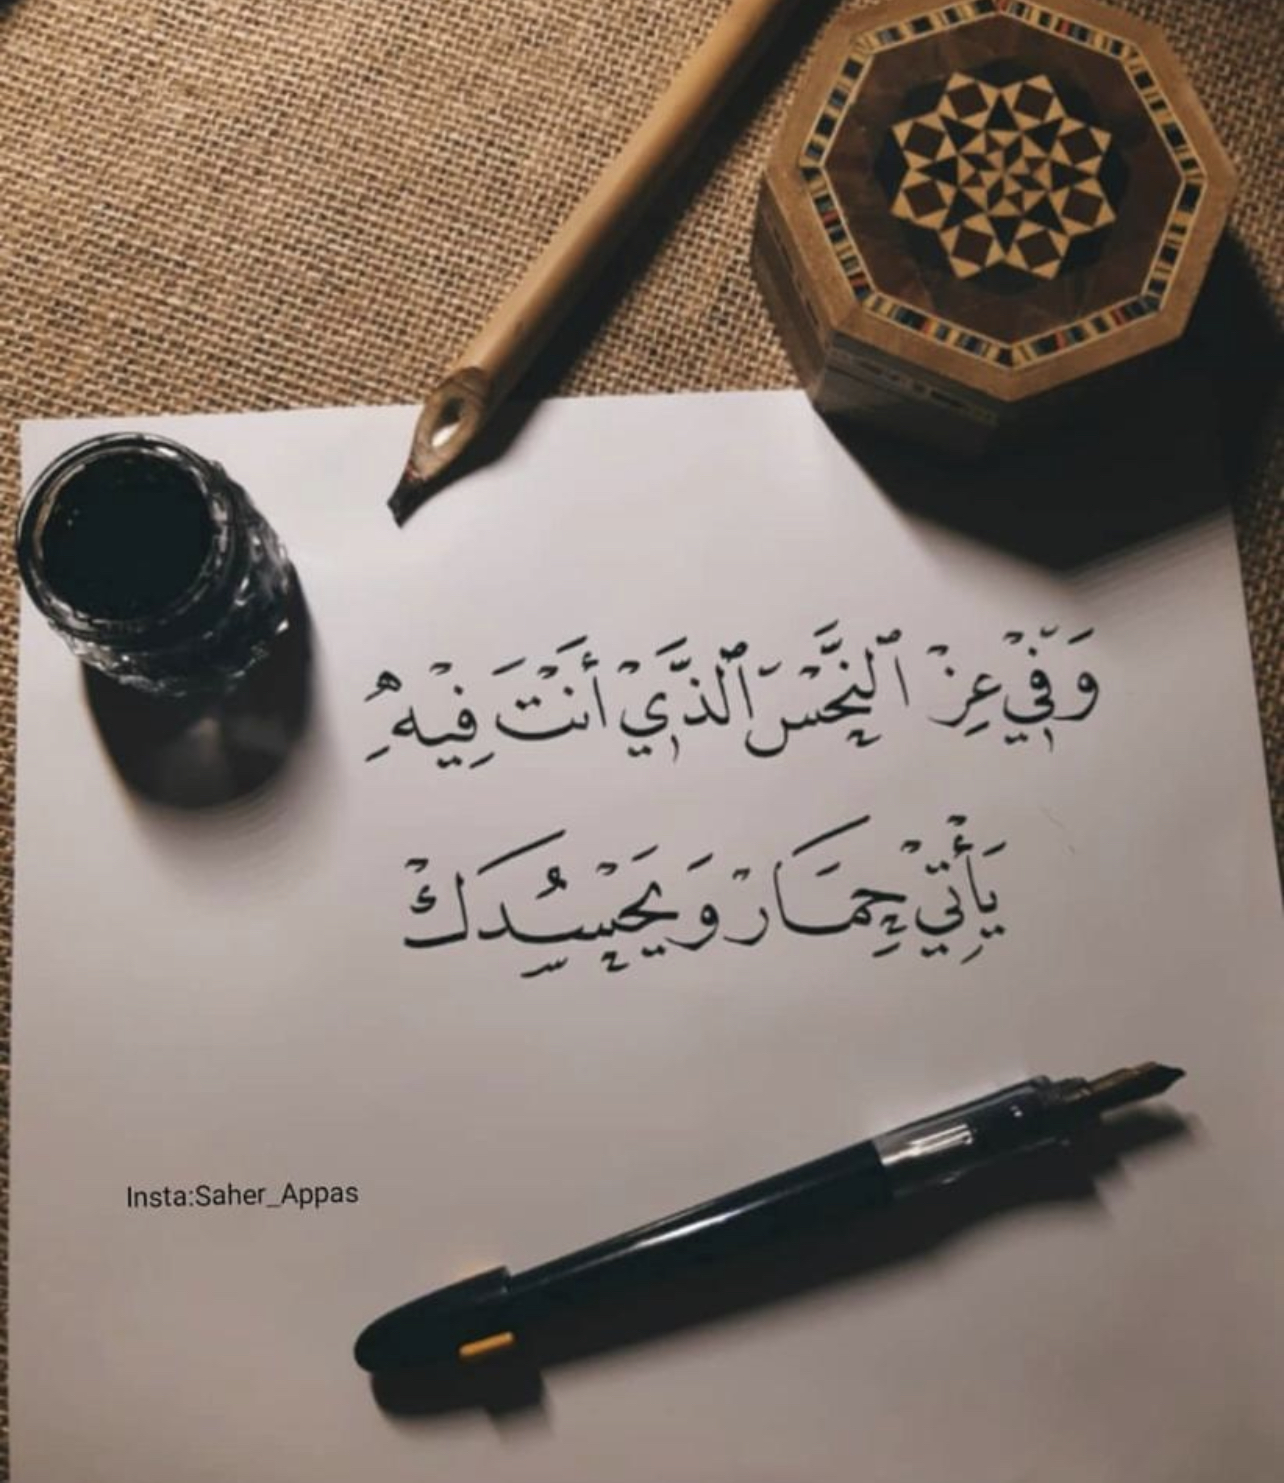 وَفِيْ عِزْ ٱلْنَّحْسَ ٱلَّذِيْ أَنْتَ فِيْهِ
يَأْتِيْ حِمَارْ وَيَحْسِدَكْ
Insta:Saher_Appas